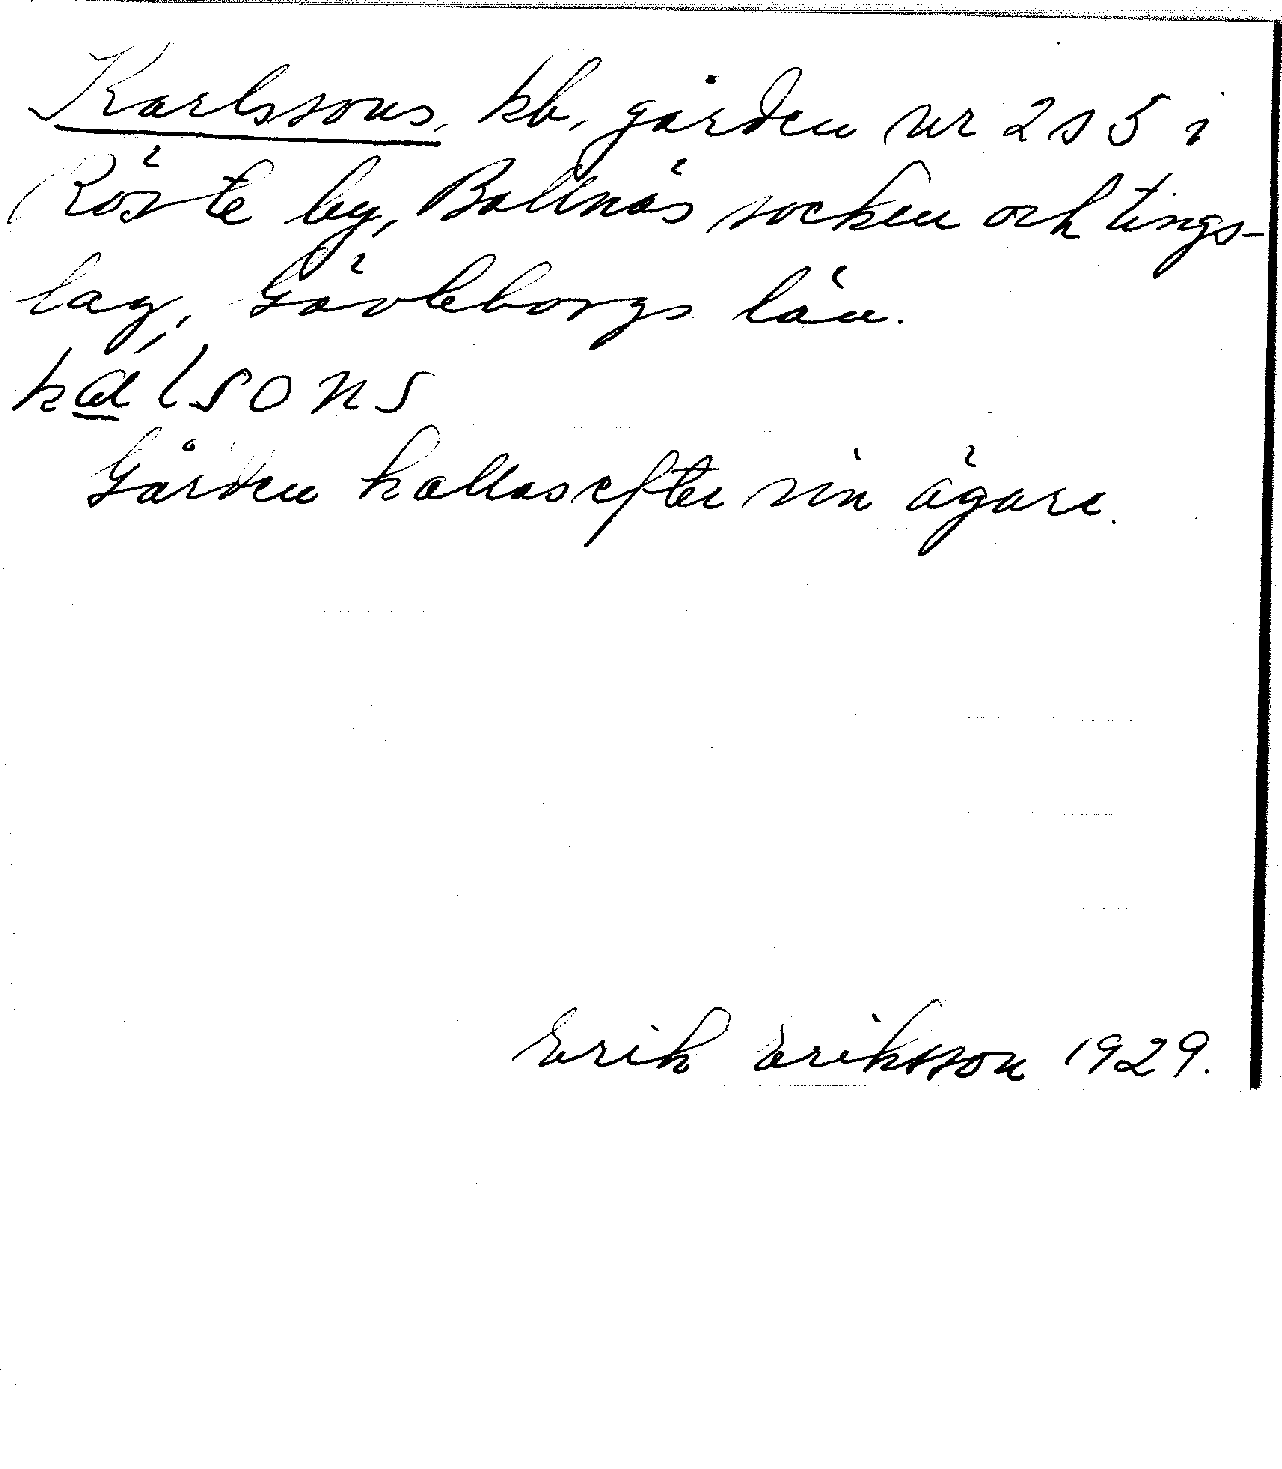 Karlssons, kb, gården nr 2 s 5 i
Röste by, Bollnäs socken och tings-
lag, Gävleborgs län.
kalsons
Gården kallas efter sin ägare.
Erik Eriksson 1929.